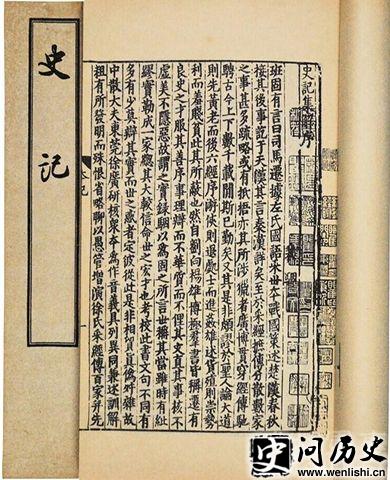 史記
史記集解序
班固有言曰司馬遷據左氏國語采世本戰國策述楚漢春秋
接其後事訖于天漢其言秦漢詳矣至於采經摭傳分散數家
之事甚多疏略或有抵捂亦其所涉獵者廣博貫穿經傳馳
騁古今上下數千載閒斯已勤矣又其是非頗謬於聖人論大道
則先黃老而後六經序游俠則退處士而進姦雄述貨殖則崇勢
利而羞賤貧此其所蔽也然自劉向楊雄博極羣書皆稱遷有
良史之才服其善序事理辯而不華質而不俚其文直其事核不
虛美不隱惡故謂之實錄駰以為固之所言世稱其當雖時有紕
繆實勒成一家總其大較信命世之宏才也考校此書文句不同有
多有少莫辯其實而世之惑者定彼從此是非相貿真偽舛雜故
中散大夫東莞徐廣研核衆本為作音義具列異同兼述訓解
粗有所發明而殊恨省略聊以愚管增演徐氏采經傳百家并先
史问历史
www.wenlishi.cn